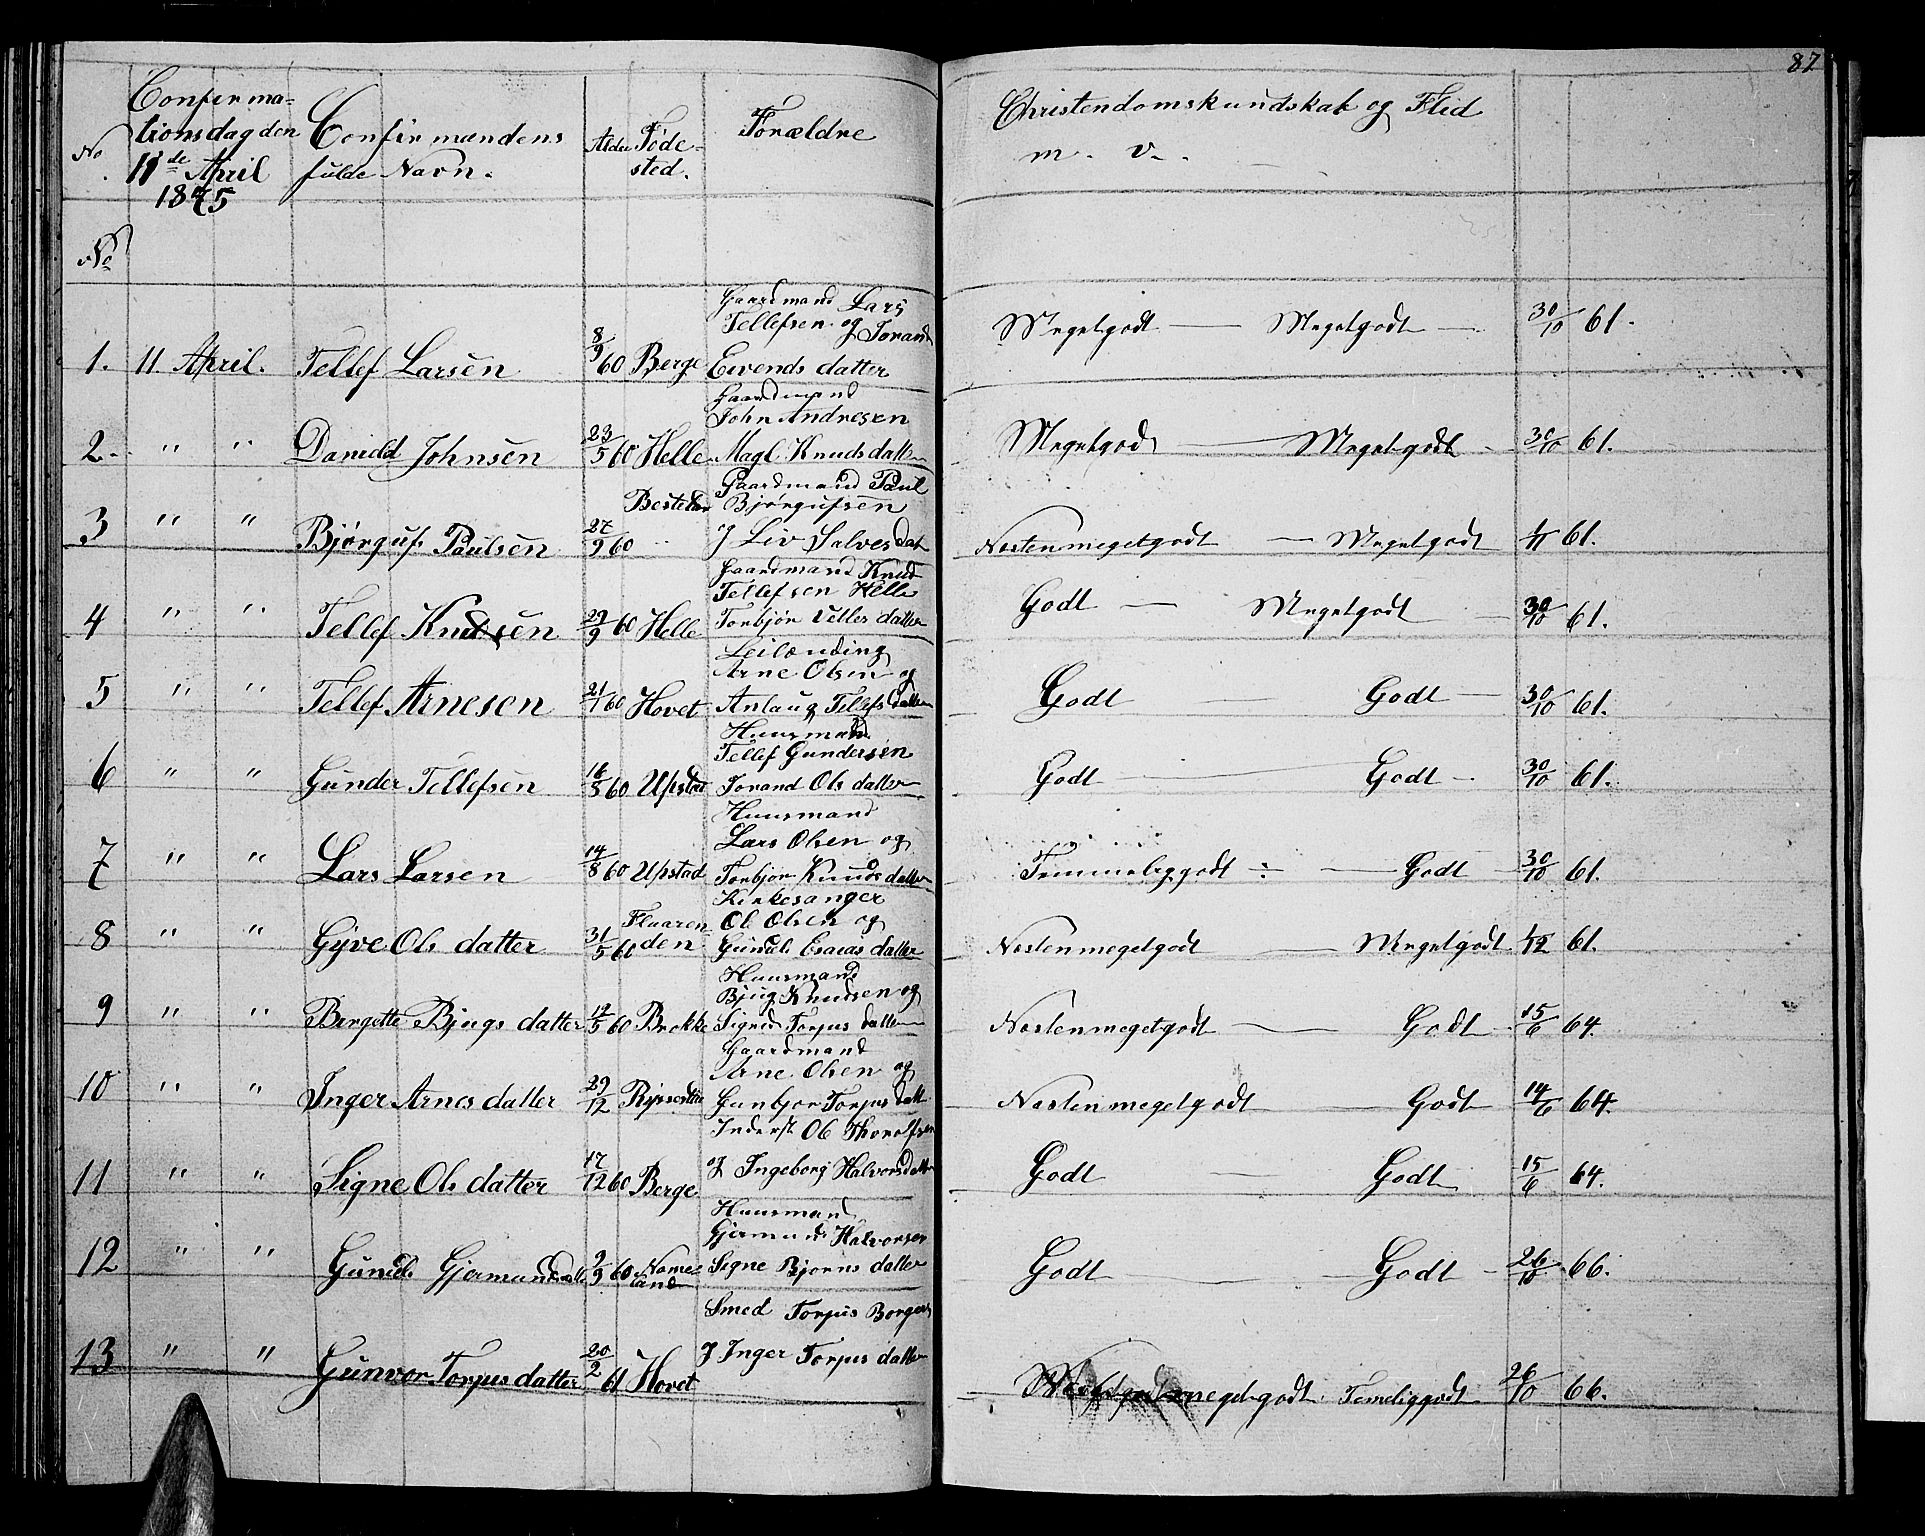 87
Confirma=
tionsdag den
11de April
1875
No
Confirmandens
fulde Navn.
Alder
Føde-
sted.
Forældre
Christendomskundskab og Flid
m. v.
No
1. 11. April. Tellef Larsen 8/9 60 Berge
Gaardmand Lars
Tellefsen og Torand
Evends datter
Megetgodt — Megetgodt — 30/10 61.
2. " " Danield Johnsen 23/5 60 Helle
Gaardmand
John Andresen
Magl Knuds datter
Megetgod — Megetgodt - 30/10 61.
3 " " Bjørguf Paulsen 27/9 60
Gaardmand Paul
Bjørgufsen
og Liv Salves dat
Næsten megetgodt — Megetgodt 1/11 61.
4 " " Tellef Knudsen 29/9 60 Helle
Gaardmand Knud
Tellefsen Helle
Torbjør datter
Godt — Megetgodt — 30/10 61.
5 " " Tellef Arnesen 21/1 60 Hovet
Leilænding
Arne Olsen og
Anlaug Tellefs datter
Godt — Godt — 30/10 61.
6 " " Gunder Tellefsen 16/5 60 Upstad
Huusmand
Tellef Gundersen
Torand Ols datter
Godt — Godt - 30/10 61.
7 " " Lars Larsen 14/8 60 Upstad
Huusmand
Lars Olsen og
Torbjør Knuds datter
Temmeliggodt — Godt - 30/10 61.
8 " " Gyve Ols datter 31/5 60 Flaaren-
den
Kirkesanger
Ol Olsen og
Gunild Esaias datter
Næsten megetgodt — Megetgodt 1/12 61.
9 " " Bergette Bjugs datter 12/5 60 Brokke
Huusmand
Bjug Knudsen og
Signe Torjus datter
Næsten megetgodt — Godt 15/6 64.
10 " " Inger Arnes datter 29/12
Gaardmand
Arne Olsen og
Gunbjor Torjus datt
Næsten megetgodt — Godt 14/6 64.
11 " " Signe Ols datter 17/12 60 Berge
Inderst Ol Thorolfsen
og Ingeborg Halvorsdatter
Godt — Godt 15/6 64.
12 " " Gunild Gjermunds 9/9 60 Nome-
land
Huusmand
Gjermund Halvorsen
Signe Bjorns datter
Godt — Godt - 26/10 66.
13 " " Gunvor Torjus datter 20/2 61 Hovet
Smed Torjus Borgers
og Inger Torjus datter
megetgodt. Temeliggodt 26/10 66.